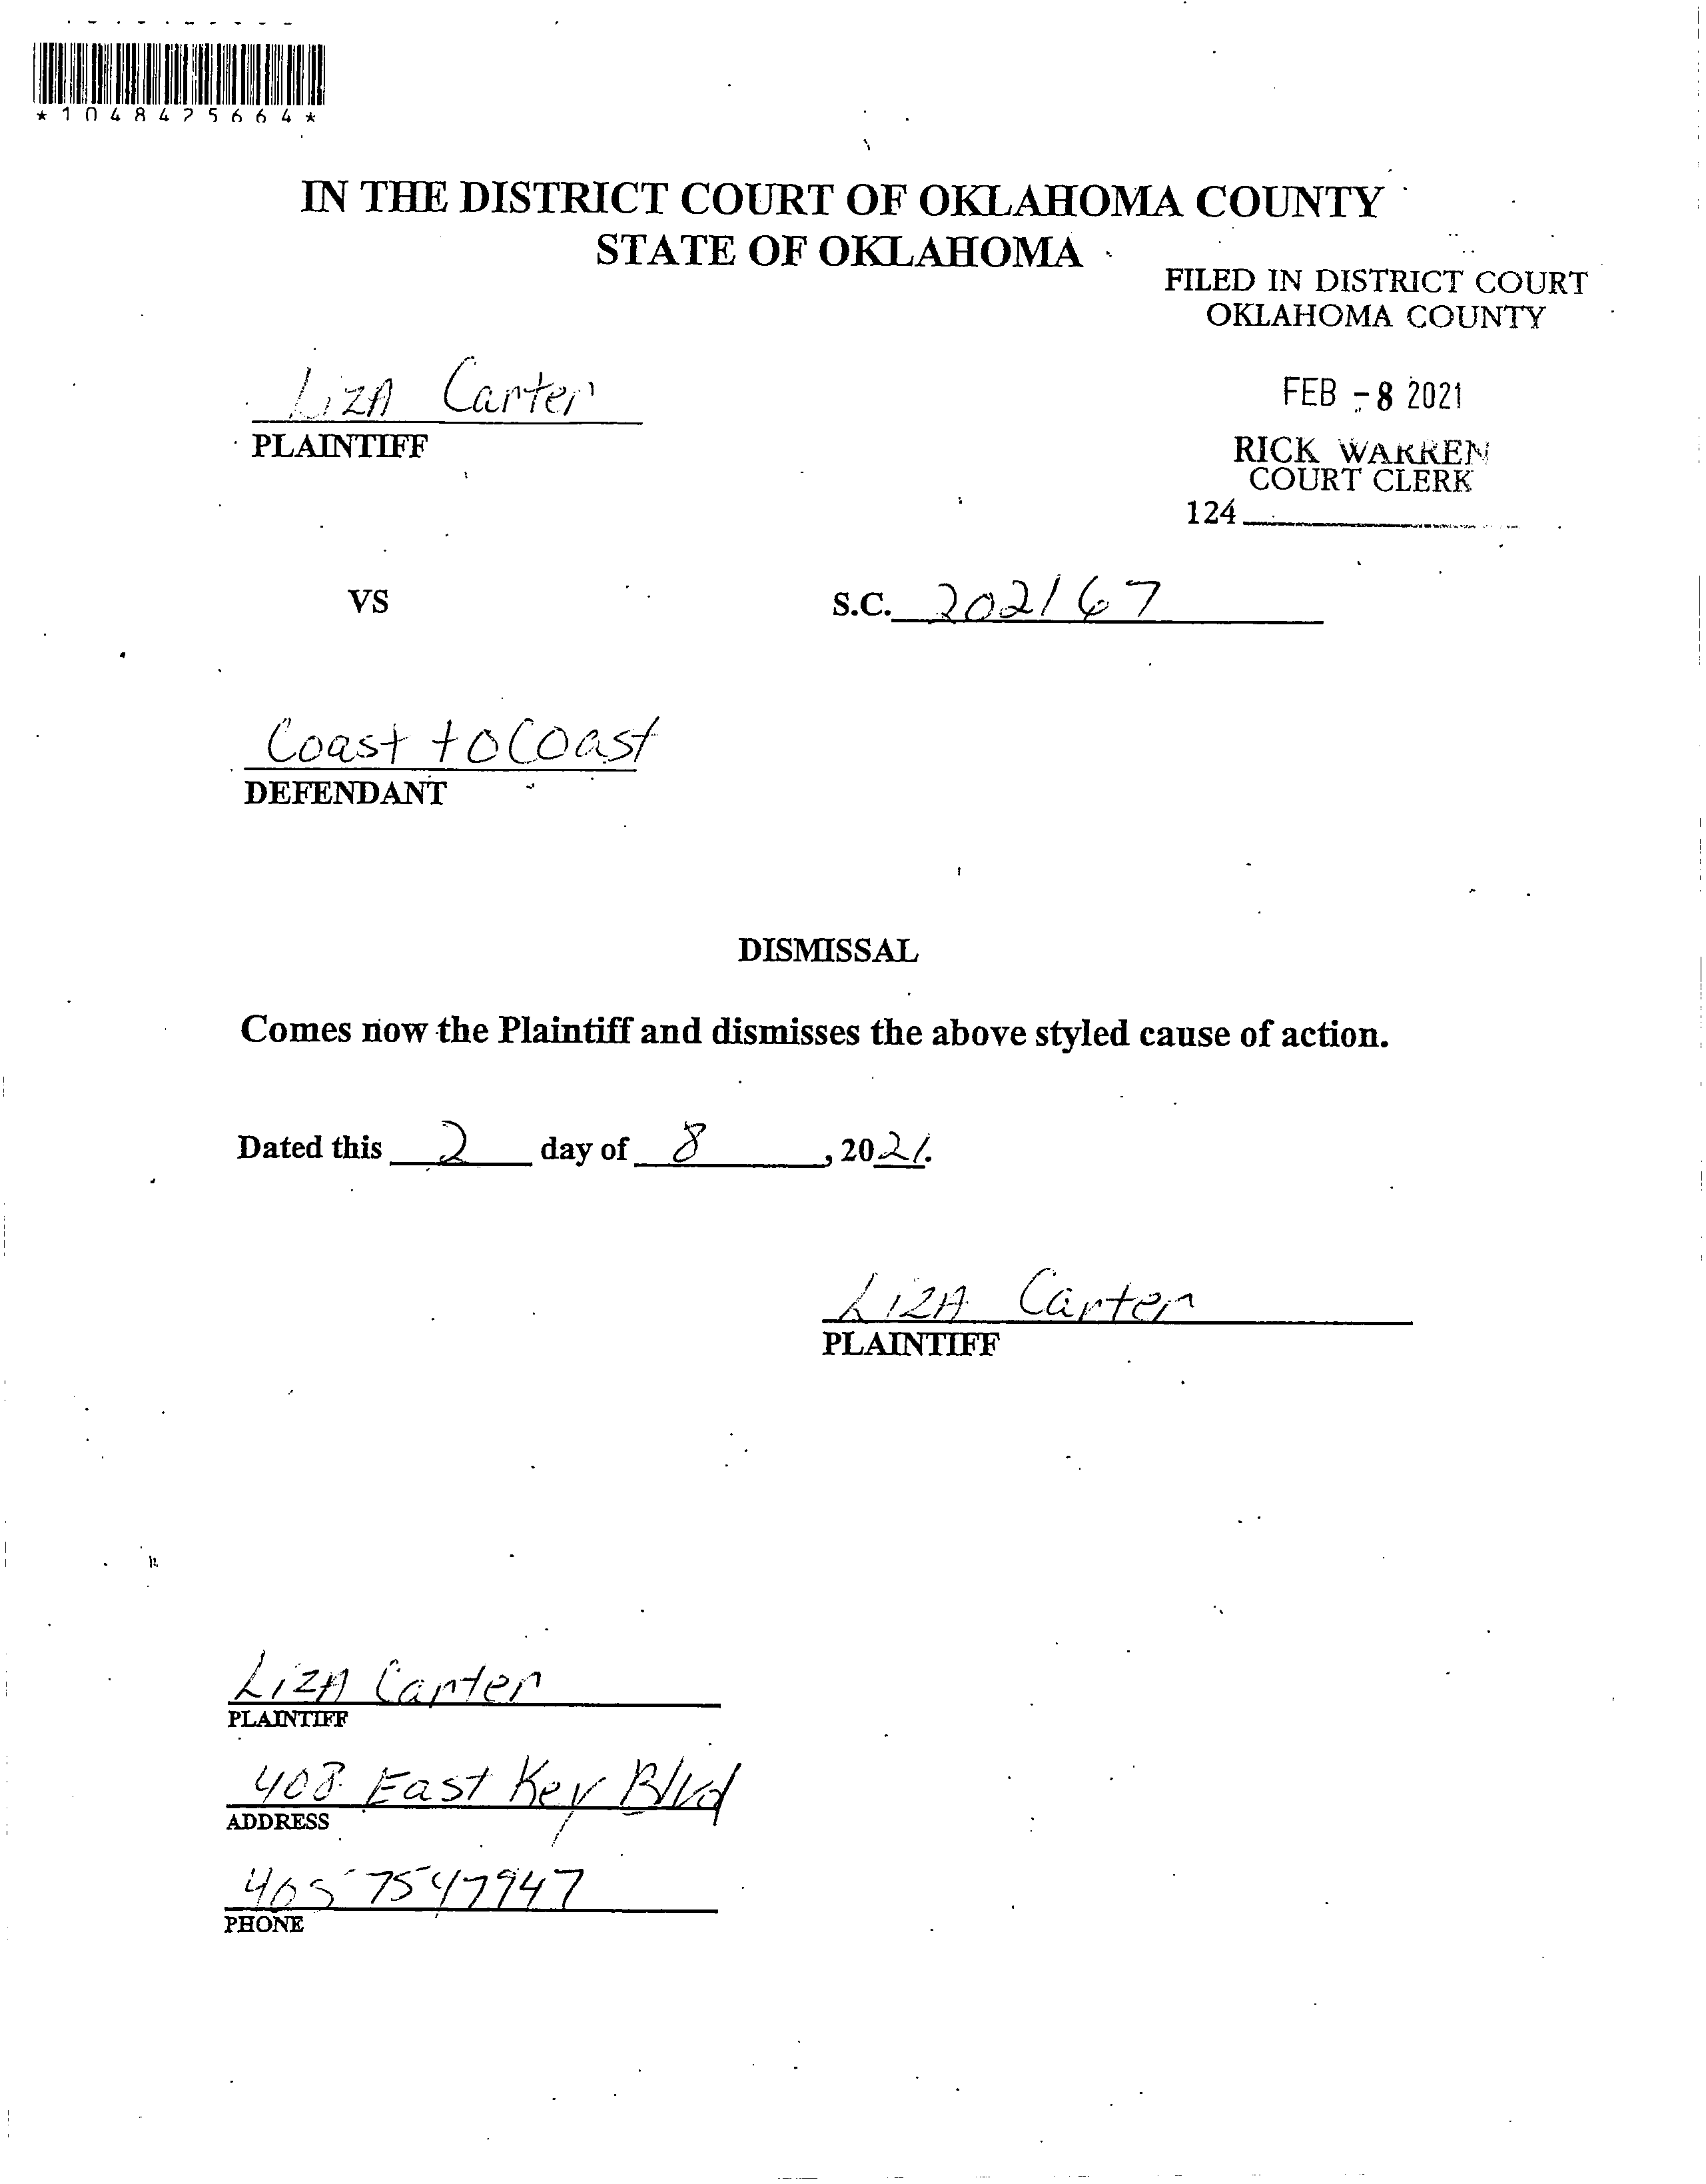 *1048425664*
IN THE DISTRICT COURT OF OKLAHOMA COUNTY
STATE OF OKLAHOMA
FILED IN DISTRICT COURT
OKLAHOMA COUNTY
LiZA Carter
PLAINTIFF
FEB -8 2021
RICK WARREN
COURT CLERK
124
VS
S.C. 202167
Coast to Coast
DEFENDANT
DISMISSAL
Comes now the Plaintiff and dismisses the above styled cause of action.
Dated this 2 day of 8, 2021.
LiZA Carter
PLAINTIFF
LiZA Carter
PLAINTIFF
408 East Key Blvd
ADDRESS
405 7547947
PHONE